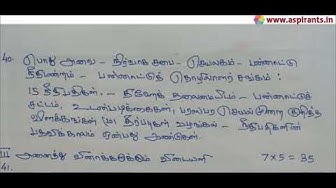 www.aspirants.in
40. பொது அவை - நிர்வாக சபை - செயலகம் - பன்னாட்டு
நீதிமன்றம் - பன்னாட்டுத் தொழிலாளர் சங்கம் :
15 நீதிபதிகள். - நிகோக் தலைமையிடம் - பன்னாட்டுச்
சட்டம், உடன்படிக்கைகள், பரஸ்பர குறித்த
விளக்கங்கள் (ம) தீர்ப்புகள் வழங்கல் - நீதிபதிகளின்
பதவிக்காலம் ஒன்பது ஆண்டுகள்.
III அனைத்து வினாக்களுக்கும் விடையளி 7x5=35
41.